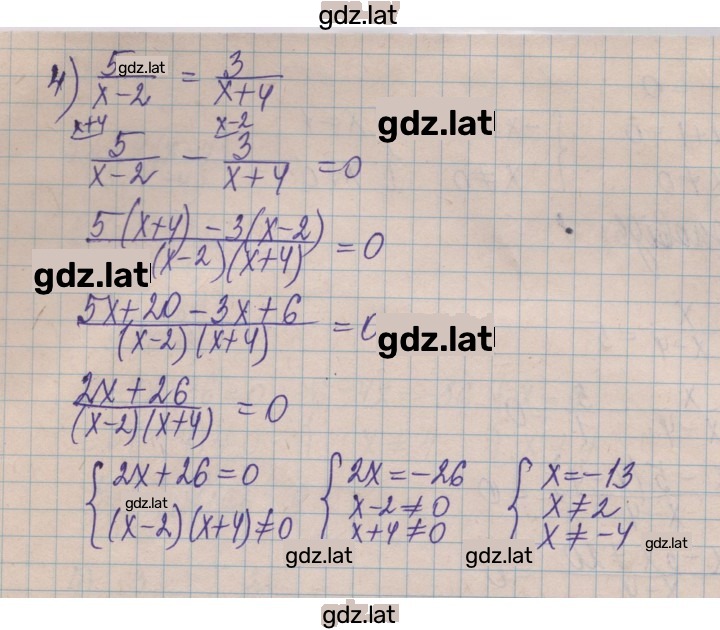 gdz.lat
4) 5/(x-2) = 3/(x+4)
gdz.lat
x+4 x-2
5/(x-2) - 3/(x+4) = 0
gdz.lat
(5(x+4) - 3(x-2))/((x-2)(x+4)) = 0
gdz.lat
(5x+20-3x+6)/((x-2)(x+4)) =
gdz.lat
(2x+26)/((x-2)(x+4)) = 0
{ 2x+26=0 { 2x=-26 { x=-13
(x-2)(x+4)≠0 x-2≠0 x≠2
x+4≠0 x≠-4
gdz.lat
gdz.lat gdz.lat gdz.lat
gdz.lat